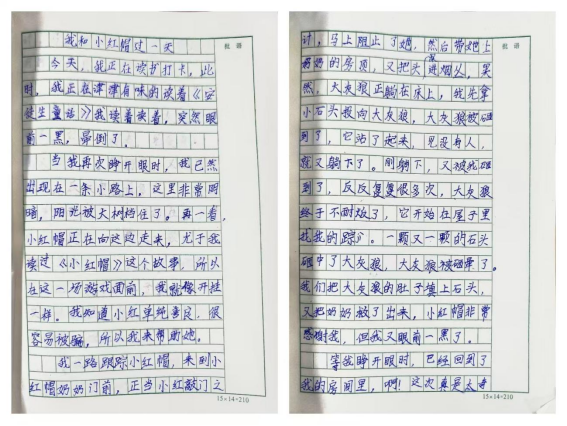 我和小红帽过一天
批语
今天，我正在读书打卡，此
时，我正在津津有味的读着《安
徒生童话》我读着读着，突然眼
前一黑，晕倒了。
当我再次睁开眼时，我已然
出现在一条小路上，这里非常阴
暗，阳光被大树档住了。再一看，
小红帽正在向这边走来，尤于我
读过《小红帽》这个故事，所以
在这一场游戏面前，我就像开挂
一样。我知道小红单纯善良，很
容易被骗，所以我来帮助她。
我一路跟踪小红帽，来到小
红帽奶奶门前，正当小红敲门之
15×14=210
批语
计，马上阻止了她，然后带她上
奶奶的房顶，又把头进烟囱，果
然，大灰狼正躺在床上，我先拿
小石头投向大灰狼，大灰狼被砸
到了，它站了起来，见没有人，
就又躺下了。刚躺下，又被我砸
到了，反反复复很多次，大灰狼
终于不耐烦了，它开始在屋子里
找我的踪。一颗又一颗的石头
砸中了大灰狼，大灰狼被砸晕了。
我们把大灰狼的肚子填上石头，
又把奶奶救了出来，小红帽非常
感谢我，但我又眼前一黑了。
等我睁开眼时，已经回到了
我的房间里，啊！这次真是太
15×14=210